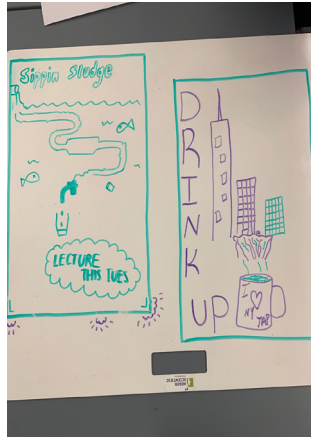 Sippin Sludge
LECTURE
THIS TUES
DRINK
UP
I
NY
TAP